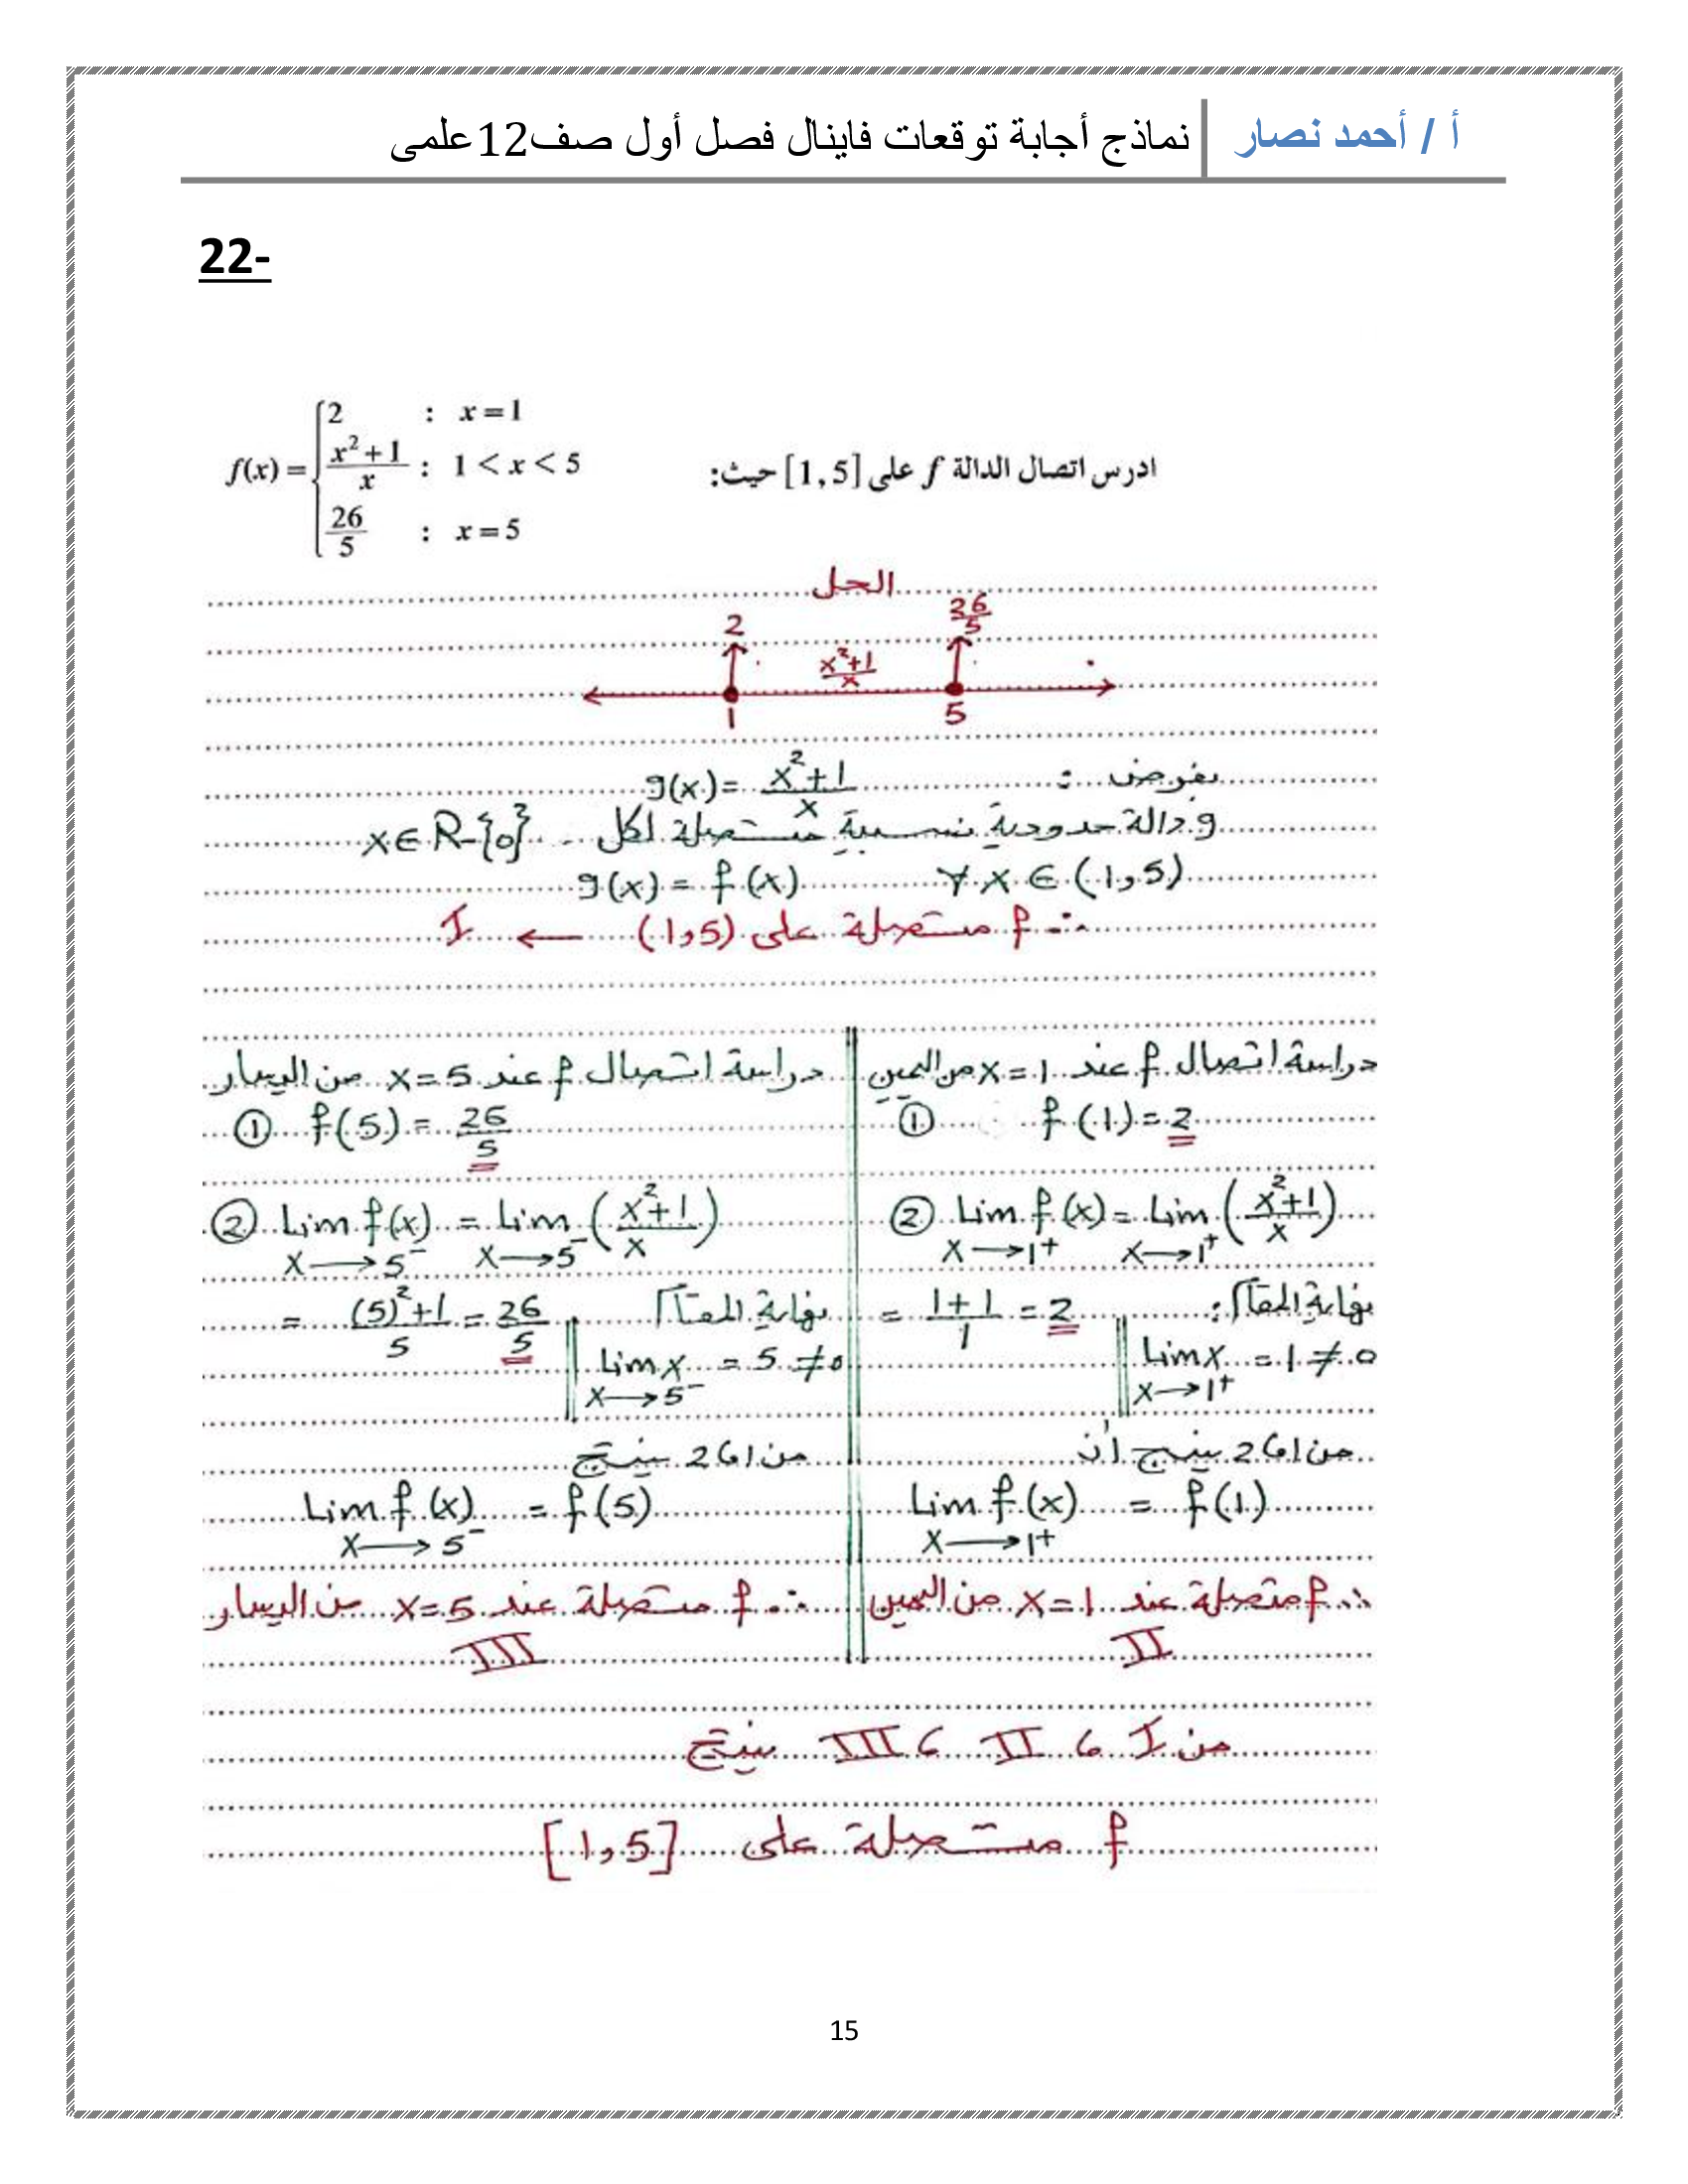 أ / أحمد نصار نماذج أجابة توقعات فاينال فصل أول صف12علمى
22-
ادرس اتصال الدالة f على [1, 5] حيث:
f(x) = { 2 : x = 1
x² + 1 / x : 1 < x < 5
26/5 : x = 5
الحل
2 26/5
x²+1 / x
1 5
بفرض : g(x) = x²+1 / x
g دالة حدودية نسبية متصلة لكل x ∈ R-{0}
g(x) = f(x) ∀ x ∈ (1,5)
∴ f متصلة على (1,5) ← I
دراسة اتصال f عند x = 1 من اليمين
① f(1) = 2
② Lim f(x) = Lim (x²+1 / x)
x→1⁺ x→1⁺
نهاية المقام :
= 1+1 / 1 = 2
Lim x = 1 ≠ 0
x→1⁺
من 1 و 2 ينتج أن
Lim f(x) = f(1)
x→1⁺
∴ f متصلة عند x = 1 من اليمين
II
دراسة اتصال f عند x = 5 من اليسار
① f(5) = 26/5
② Lim f(x) = Lim (x²+1 / x)
x→5⁻ x→5⁻
نهاية المقام
= (5)²+1 / 5 = 26/5
Lim x = 5 ≠ 0
x→5⁻
من 1 و 2 ينتج
Lim f(x) = f(5)
x→5⁻
∴ f متصلة عند x = 5 من اليسار
III
من I و II و III ينتج
f متصلة على [1,5]
15